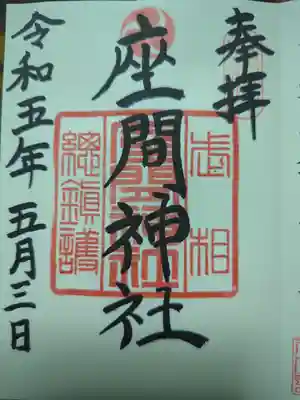 奉拝
座間神社
武相
座間神社
總鎮護
令和五年 五月三日